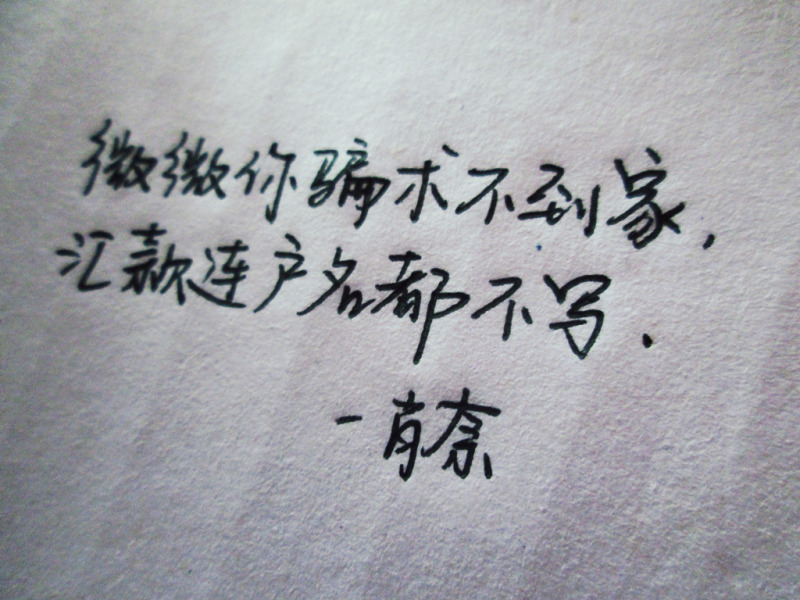 微微你骗术不到家,
汇款连户名都不写.
—肖奈